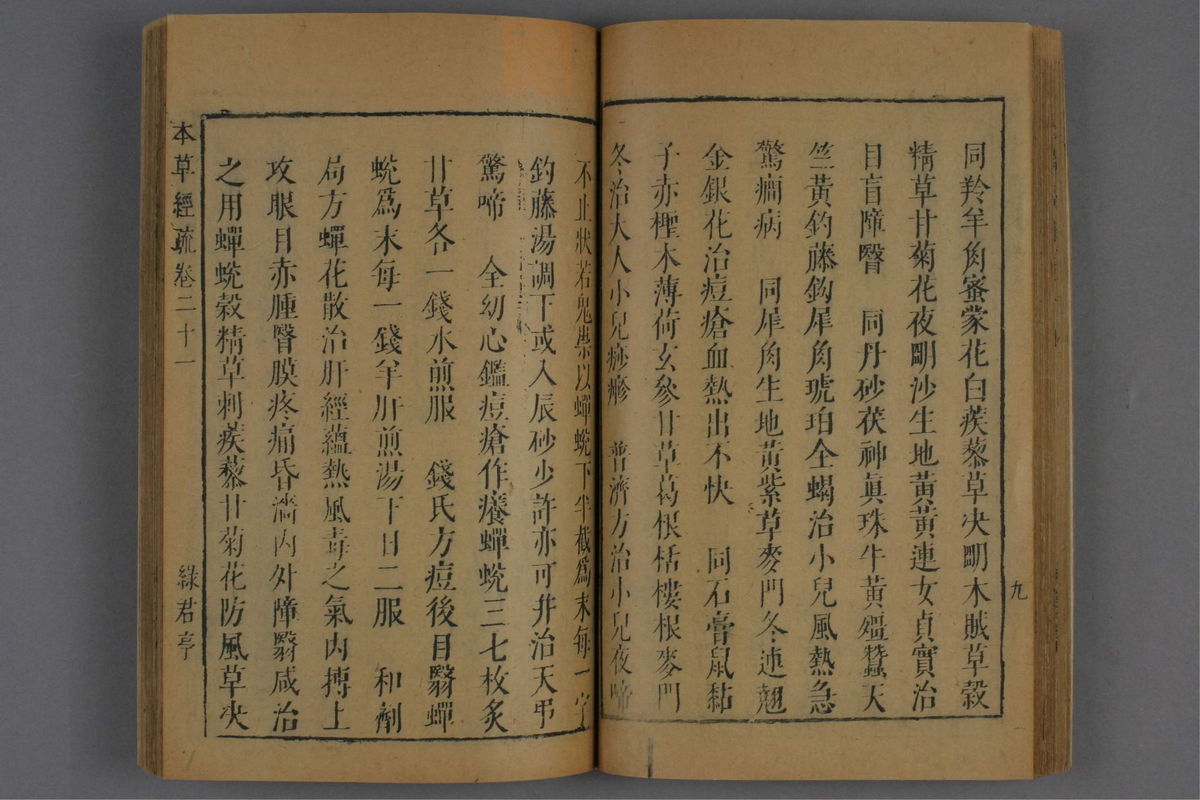 同羚羊角蜜蒙花白蒺藜草决明木賊草穀
精草甘菊花夜明沙生地黄黄連女貞實治
目盲障瞖　同丹砂茯神眞珠牛黄殭蠶天
竺黄釣藤鈎犀角琥珀全蝎治小兒風熱急
驚癎病　同犀角生地黄紫草麥門冬連翹
金銀花治痘瘡血熱出不快　同石膏鼠黏
子赤檉木薄荷玄參甘草葛根栝樓根麥門
冬治大人小兒痧疹　普濟方治小兒夜啼
九
不止狀若鬼祟以蟬蛻下半截爲末每一字
釣藤湯調下或入辰砂少許亦可幷治天弔
驚啼　全幼心鑑痘瘡作癢蟬蛻三七枚炙
甘草各一錢水煎服　錢氏方痘後目翳蟬
蛻爲末每一錢羊肝煎湯下日二服　和劑
局方蟬花散治肝經蘊熱風毒之氣内搏上
攻眼目赤腫瞖膜疼痛昏濇内外障翳咸治
之用蟬蛻穀精草刺蒺藜甘菊花防風草决
本草經疏卷二十一
綠君亭